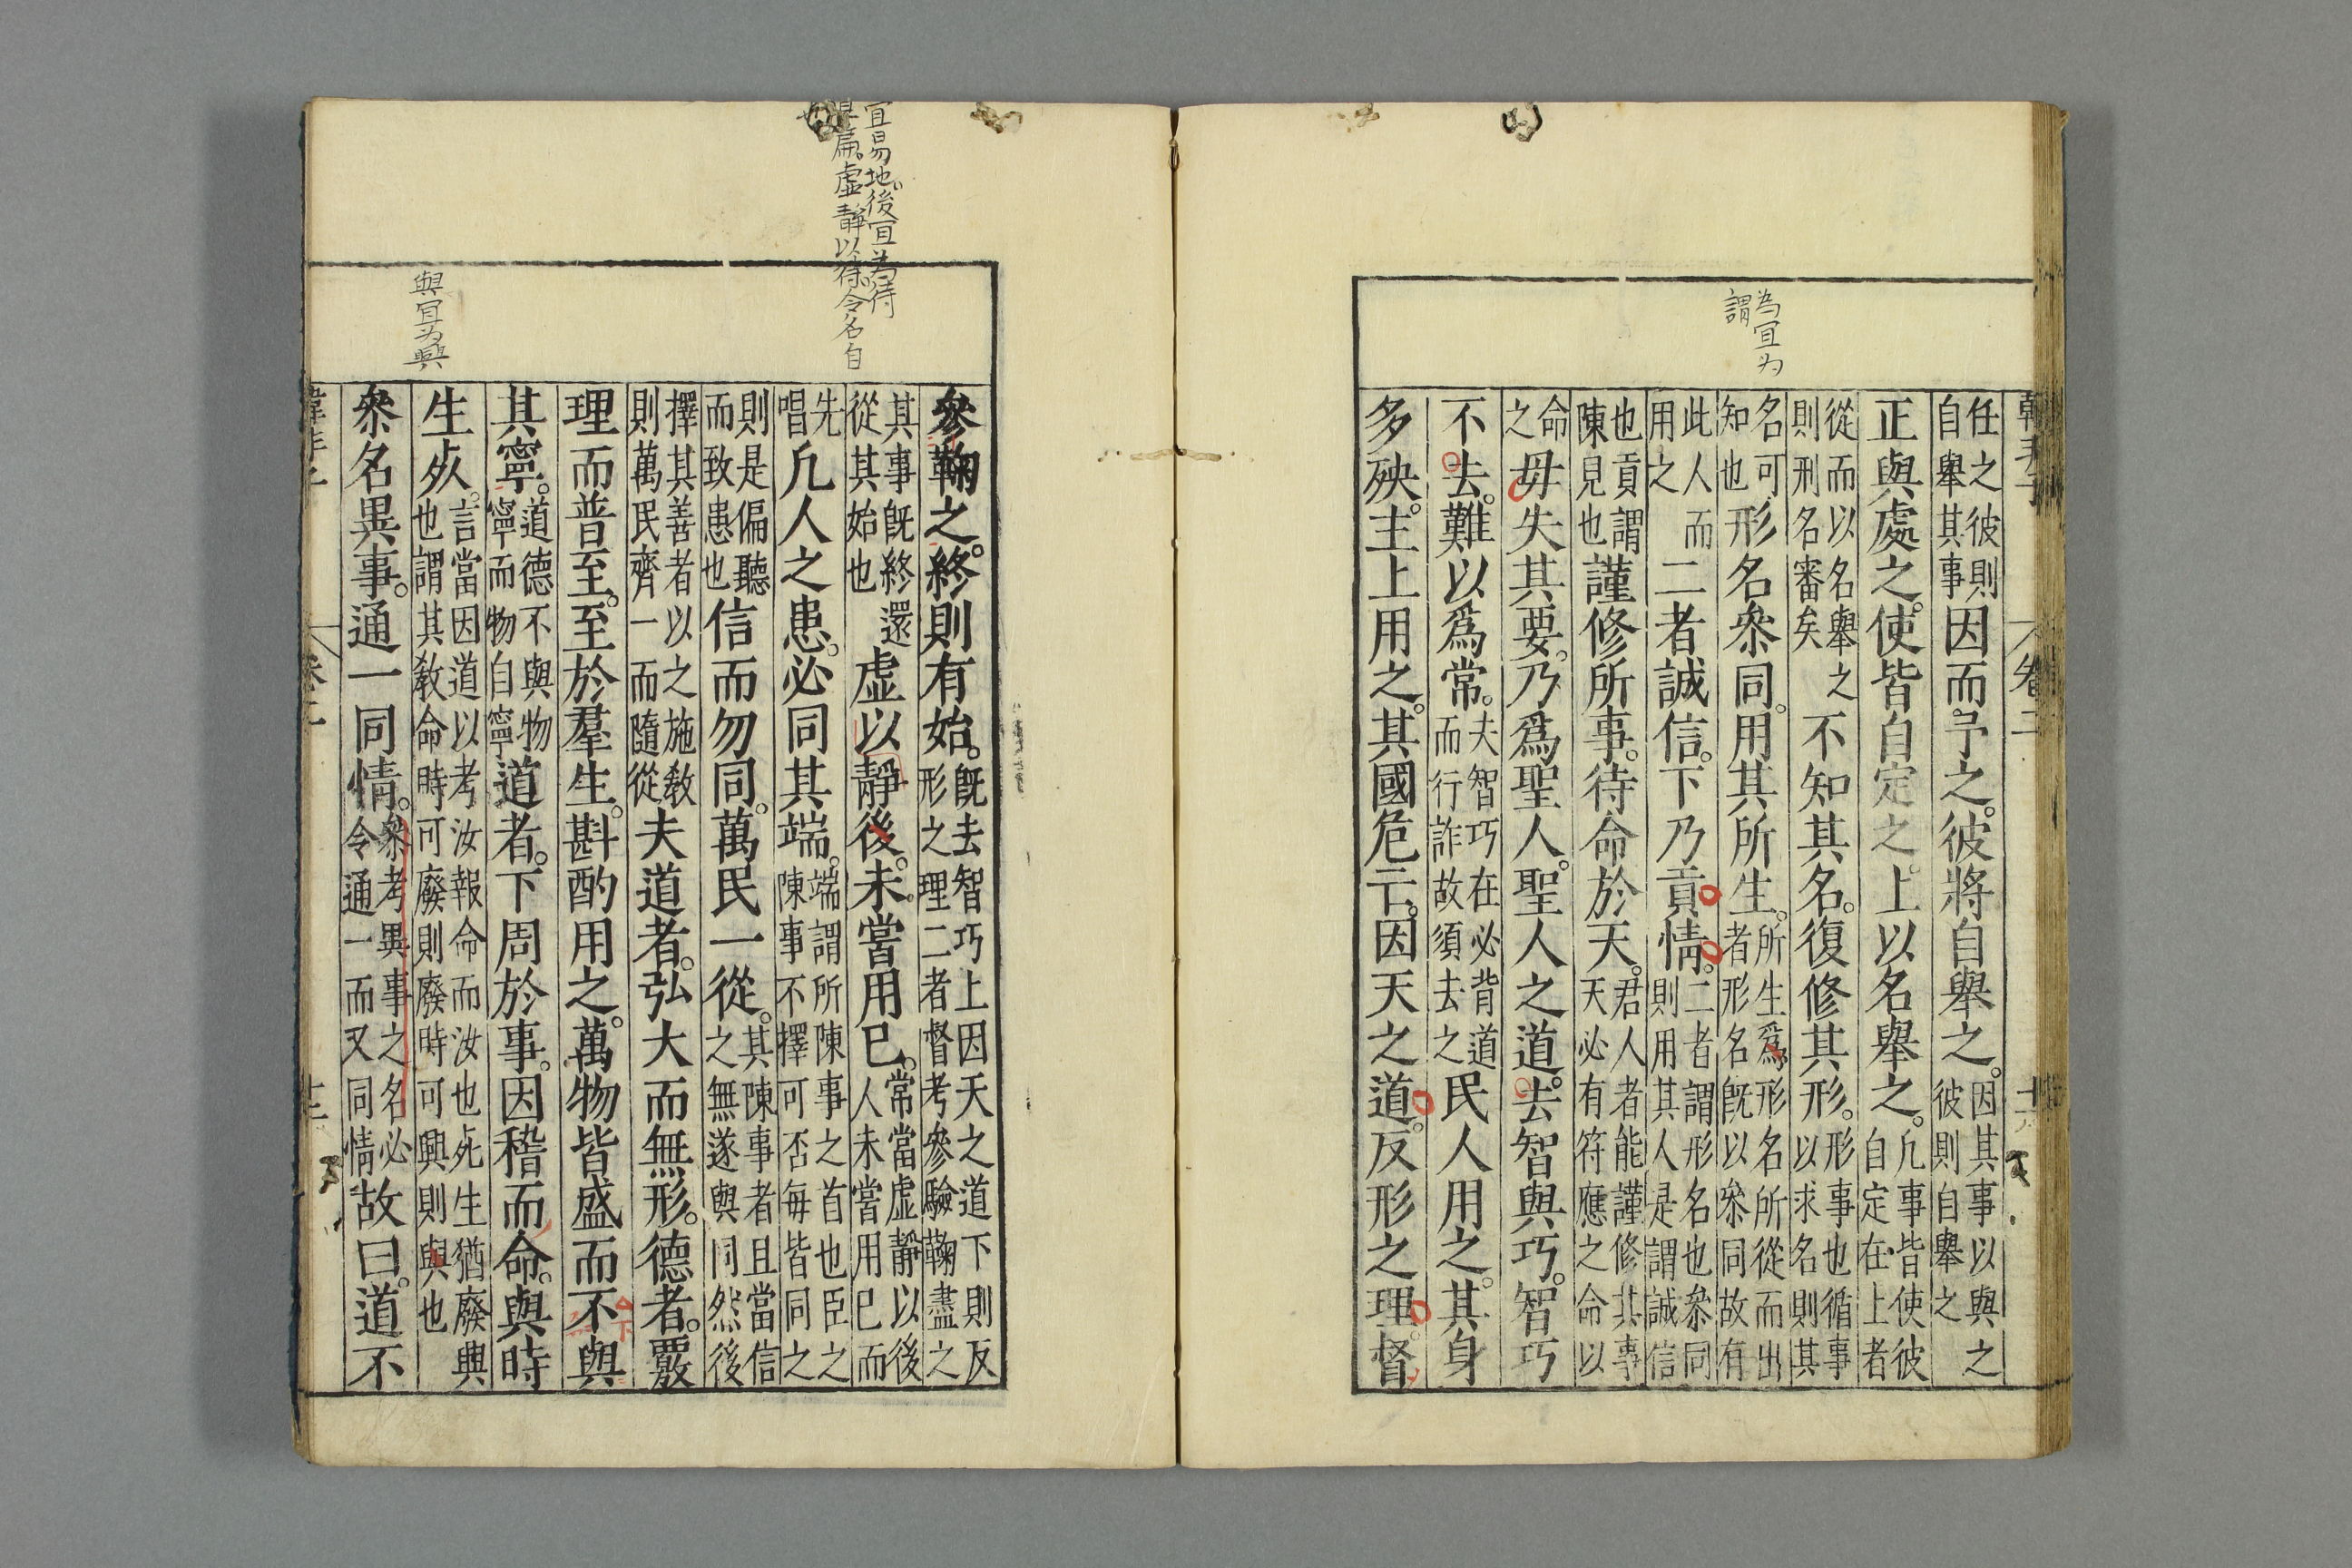 為宜为
謂
韓非子
卷二
任之彼則
自舉其事
因而予之。彼將自舉之。
因其事以與之
彼則自舉之
正與處之。使皆自定之。上以名舉之。
凡事皆使彼
自定在上者
從而以名舉之
則刑名審矣
不知其名。復修其形。
形事也循事
以求名則其
名可
知也
形名叅同。用其所生。
所生爲形名所從而出
者形名旣以叅同故有
此人而
用之
二者誠信。下乃貢情。
二者謂形名也叅同
則用其人是謂誠信
也貢謂
陳見也
謹修所事。待命於天。
君人者能謹修其事
天必有符應之命以
命
之
毋失其要。乃爲聖人。聖人之道。去智與巧。智巧
不去。難以爲常。
夫智巧在必背道
而行詐故須去之
民人用之。其身
多殃。主上用之。其國危亡。因天之道。反形之理。督
宜易地。後宜为待
篇。虛靜以待。令名自
與宜为興
參鞠之。終則有始。
旣去智巧上因天之道下則反
形之理二者督考參驗鞠盡之
其事旣終還
從其始也
虛以靜後。未嘗用已。
常當虛靜以後
人未嘗用已而
先
唱
凡人之患。必同其端。
端謂所陳事之首也臣之
陳事不擇可否每皆同之
則是偏聽
而致患也
信而勿同。萬民一從。
其陳事者且當信
之無遂與同然後
擇其善者以之施敎
則萬民齊一而隨從
夫道者。弘大而無形。德者。覈
理而普至。至於羣生。斟酌用之。萬物皆盛而不與
其寧。
道德不與物
寧而物自寧
道者。下周於事。因稽而命。與時
生死。
言當因道以考汝報命而汝也死生猶廢興
也謂其敎命時可廢則廢時可興則與也
叅名異事。通一同情。
叅考異事之名必
令通一而又同情
故曰。道不
韓非子
卷二